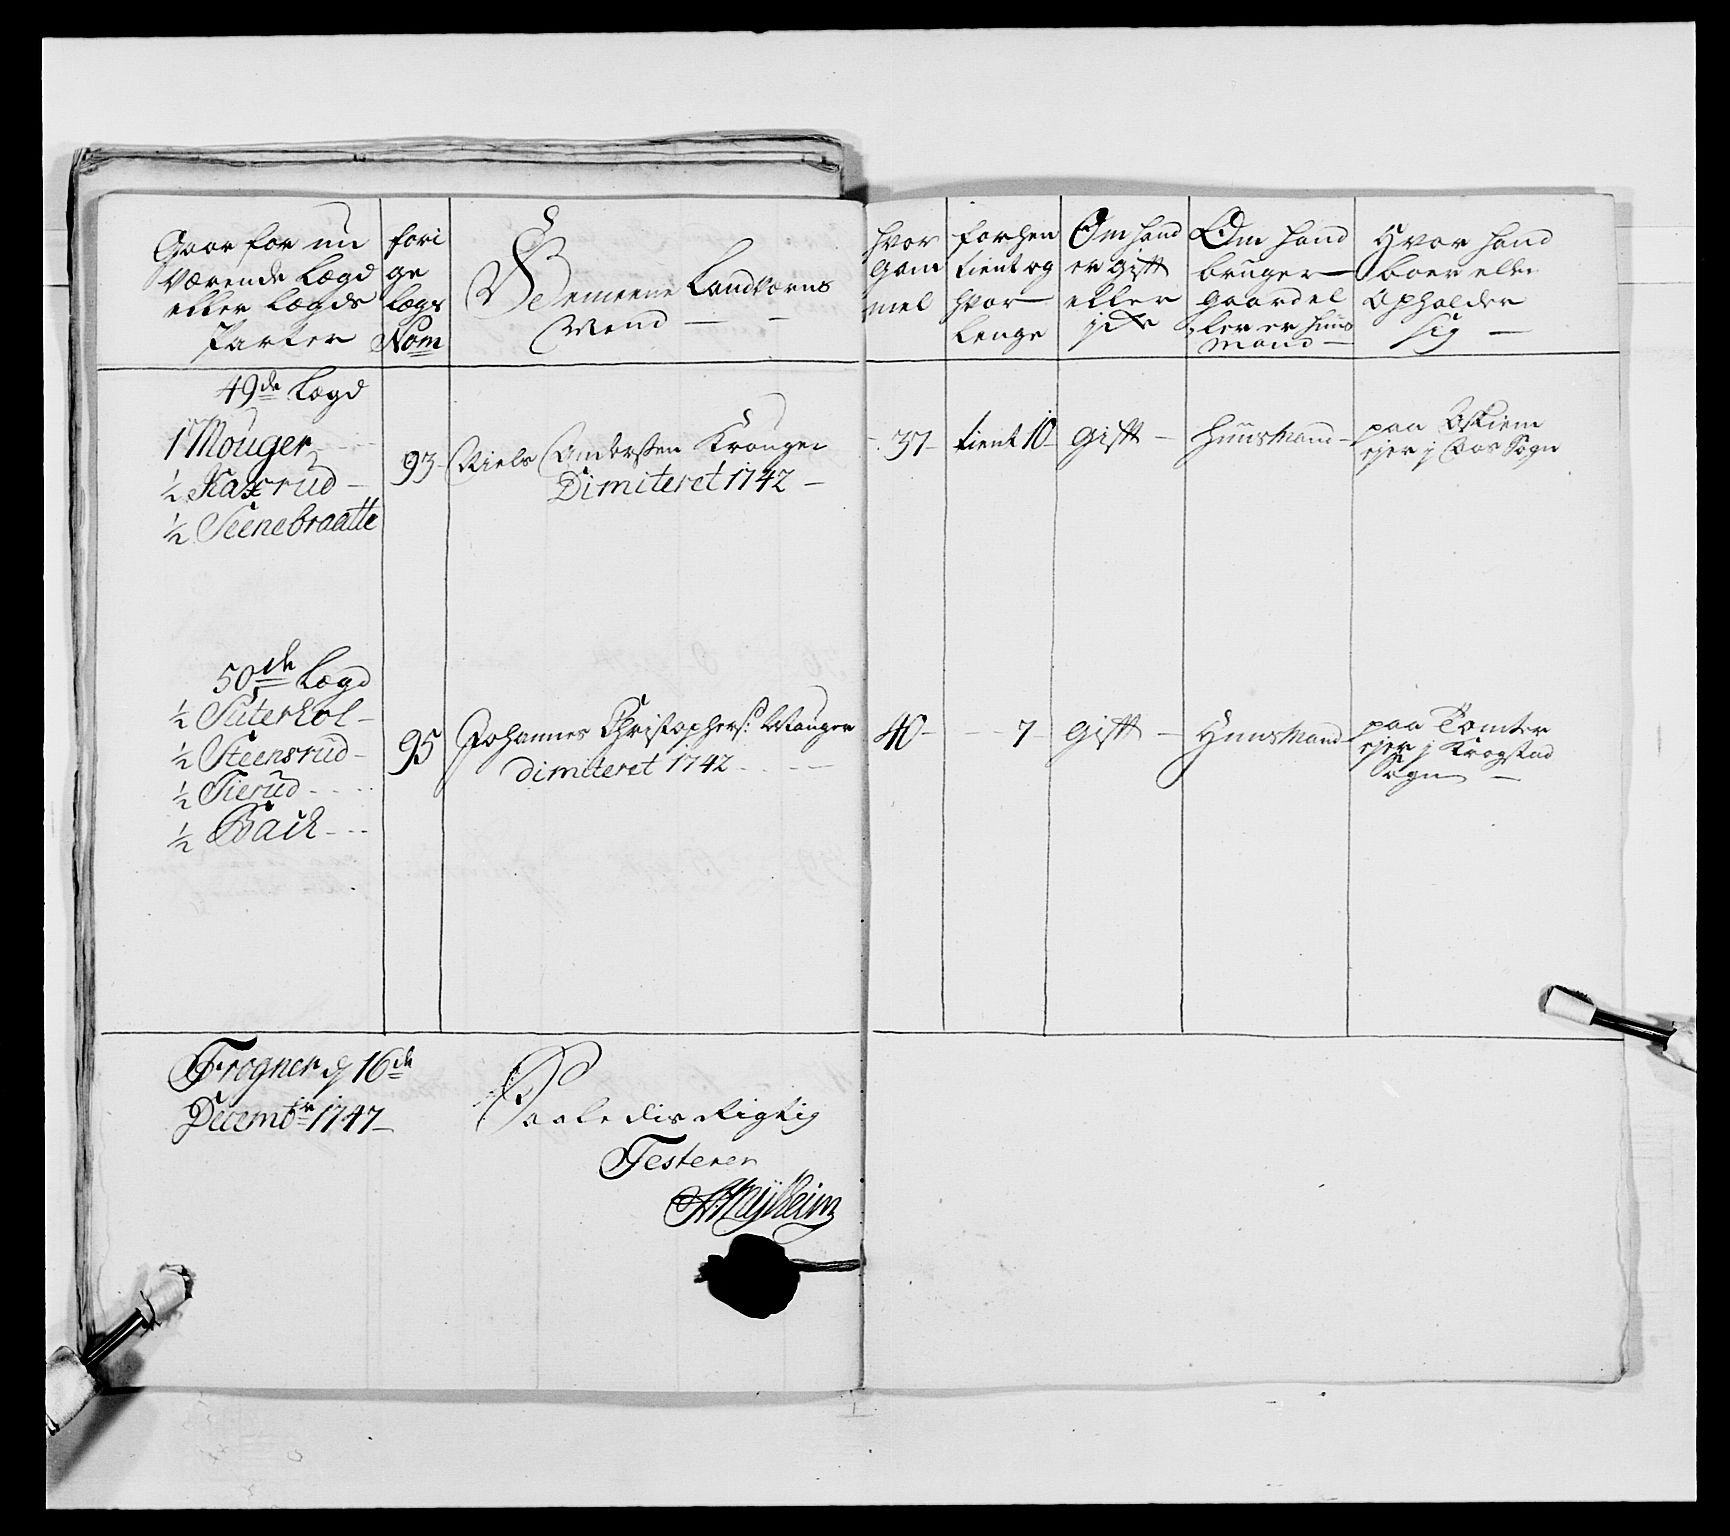 Gaar for nu
værende Lægd
eller Lægds
Parter
fori
ge
Lægs
Nom
Gemeene Landværns
Mend
hvor
gam
mel
forhen
tient og
hvor
lenge
Om hand
er gift
eller
Om hand
bruger
gaard el
ler er huus
mand
Hvor hand
boer eller
Opholder
sig
49de Lægd
1 Mouger
½ Kaxrud
½ Teenebraatte
93
Niels Andersen Krouger
Dimiteret 1742
37
tient 10
gift
huusmand
paa Askiem
ejer j Aas Sogn
50de Lægd
½ Süterhol
½ Steensrud
½ Tierud
½ Bach
95
Johannes Christophers: Mauger
dimiteret 1742
40
7
gift
Huusmand
paa Tomter
ejer j Krogstad
Sogn
Frogner d 16de
Decembr 1747
Saaledis Rigtig
Testerer